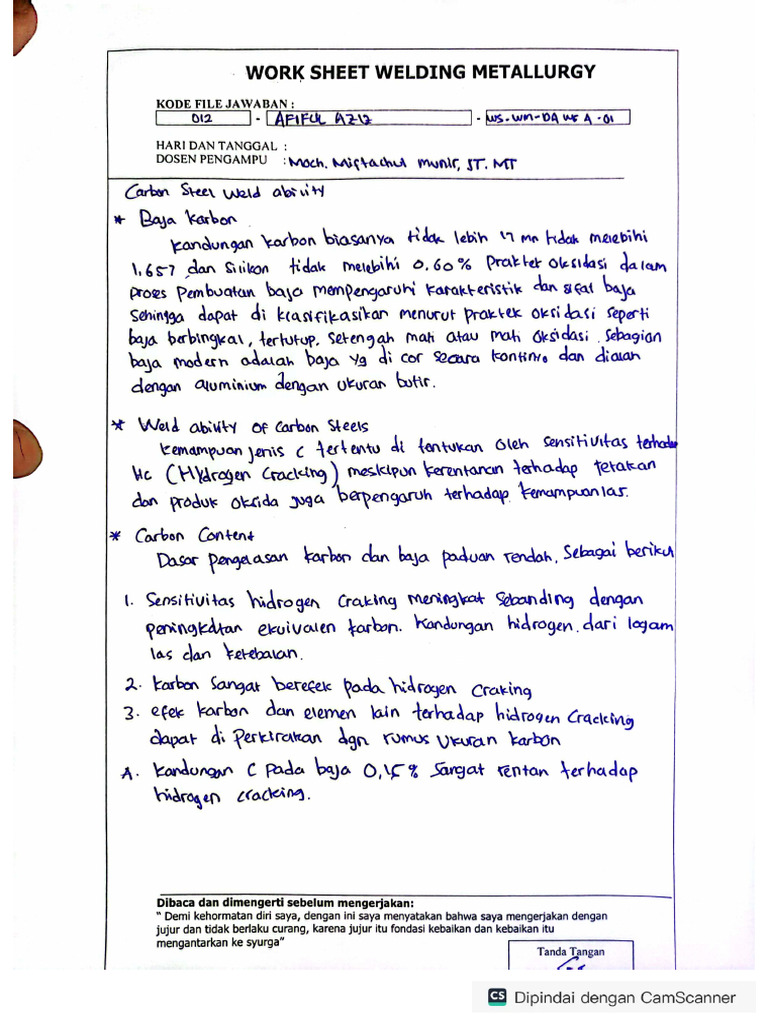 WORK SHEET WELDING METALLURGY
KODE FILE JAWABAN :
012 - AFIFUL AZIZ - WS-WM-DA WS A -01
HARI DAN TANGGAL :
DOSEN PENGAMPU : Moch. Miftachul Munir, ST. MT
Carbon Steel Weld ability
* Baja Karbon
Kandungan karbon biasanya tidak lebih 17 mn tidak melebihi
1.657 dan Silikon tidak melebihi 0.60% Praktek oksidasi dalam
proses pembuatan baja mempengaruhi karakteristik dan sifat baja
Sehingga dapat di klasifikasikan menurut praktek oksidasi seperti
baja berbingkai, tertutup, setengah mati atau mati oksidasi. Sebagian
baja modern adalah baja yg di cor secara kontinro dan diolah
dengan aluminium dengan ukuran butir.
* Weld ability of Carbon Steels
Kemampuan jenis C tertentu di tentukan oleh sensitivitas terhadap
HC (Hydrogen Cracking) meskipun kerentanan terhadap retakan
dan produk oksida juga berpengaruh terhadap kemampuan las.
* Carbon Content
Dasar pengelasan karbon dan baja paduan rendah, Sebagai berikut
1. Sensitivitas hidrogen craking meningkat sebanding dengan
peningkatan ekuivalen karbon. Kandungan hidrogen dari logam
las dan ketebalan.
2. Karbon sangat berefek pada hidrogen craking
3. efek karbon dan elemen lain terhadap hidrogen Cracking
dapat di perkirakan dgn rumus ukuran karbon
A. Kandungan C pada baja 0,15% Sangat rentan terhadap
hidrogen cracking.
Dibaca dan dimengerti sebelum mengerjakan:
" Demi kehormatan diri saya, dengan ini saya menyatakan bahwa saya mengerjakan dengan
jujur dan tidak berlaku curang, karena jujur itu fondasi kebaikan dan kebaikan itu
mengantarkan ke syurga"
Tanda Tangan
CS Dipindai dengan CamScanner